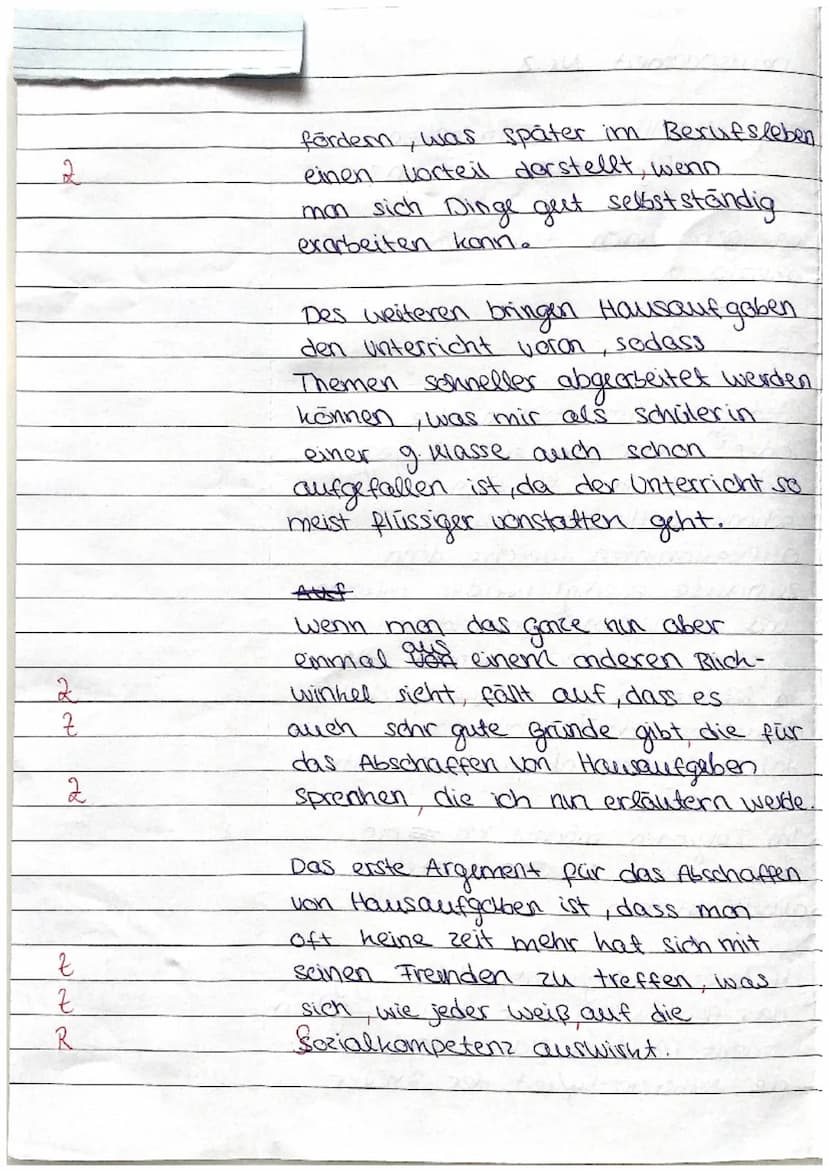 fördern, was später im Berufsleben
Z einen Vorteil darstellt, wenn
man sich Dinge gut selbstständig
erarbeiten kann.
Des weiteren bringen Hausaufgaben
den Unterricht voran, sodass
Themen schneller abgearbeitet werden
können, was mir als Schülerin
einer 9. Klasse auch schon
aufgefallen ist, da der Unterricht so
meist flüssiger vonstatten geht.
Auf
Wenn man das Ganze nun aber
einmal aus einem anderen Blick-
Z winkel sieht, fällt auf, dass es
Z auch sehr gute Gründe gibt, die für
das Abschaffen von Hausaufgaben
Z sprechen, die ich nun erläutern werde.
Das erste Argument für das Abschaffen
von Hausaufgaben ist, dass man
oft keine Zeit mehr hat sich mit
Z seinen Freunden zu treffen, was
Z sich, wie jeder weiß, auf die
R Sozialkompetenz auswirkt.